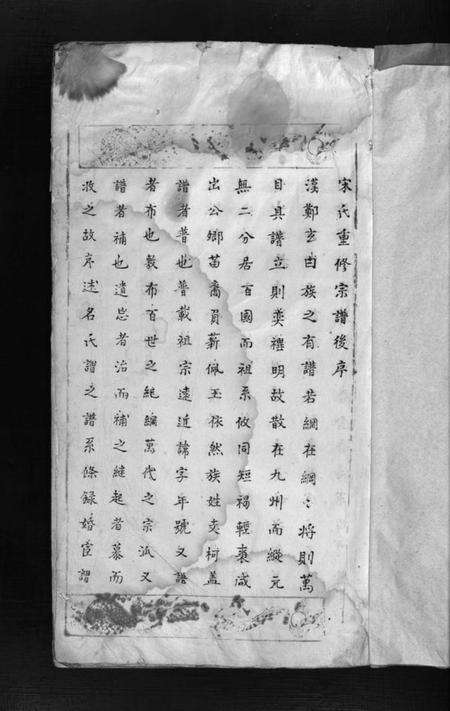 宋氏重修宗譜後序
漢鄭玄曰族之有譜若網在綱〻将則萬
目具譜立則奕禩明故散在九州而縱元
無二分居百國而祖系攸同短褐輕裘咸
出公鄉苗裔負薪佩玉依然族姓交柯蓋
譜者普也普載祖宗遠近諱字年號又譜
者布也敷布百世之紀綱萬代之宗派又
譜者補也遺忘者治而補之継起者慕而
效之故序述名氏謂之譜系條録婚宦謂